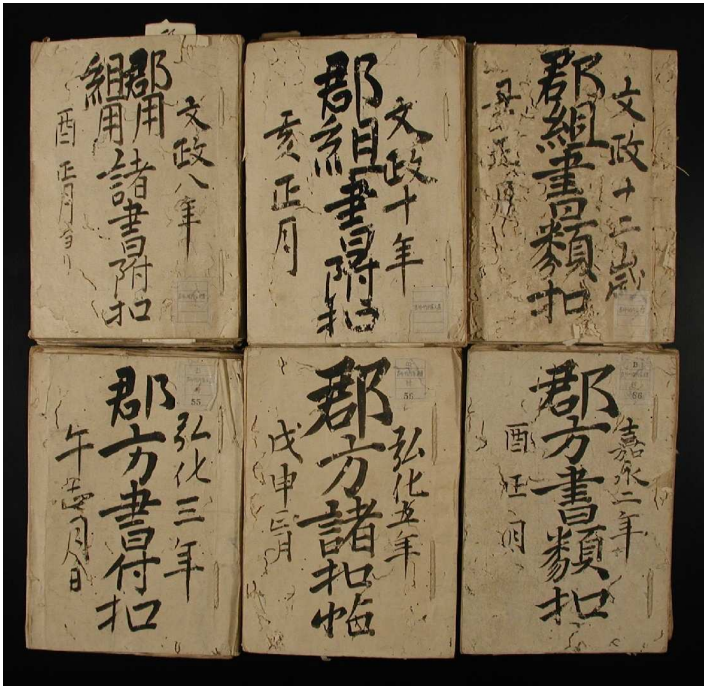 文政八年
郡用
組用
諸書附扣
酉正月ゟ
文政十年
郡組書附扣
亥正月
文政十二歳
郡組書類扣
丑正月
弘化三年
郡方書付扣
午正月日
55
弘化五年
郡方諸扣帳
戊申正月
56
嘉永二年
郡方書類扣
酉正月
56